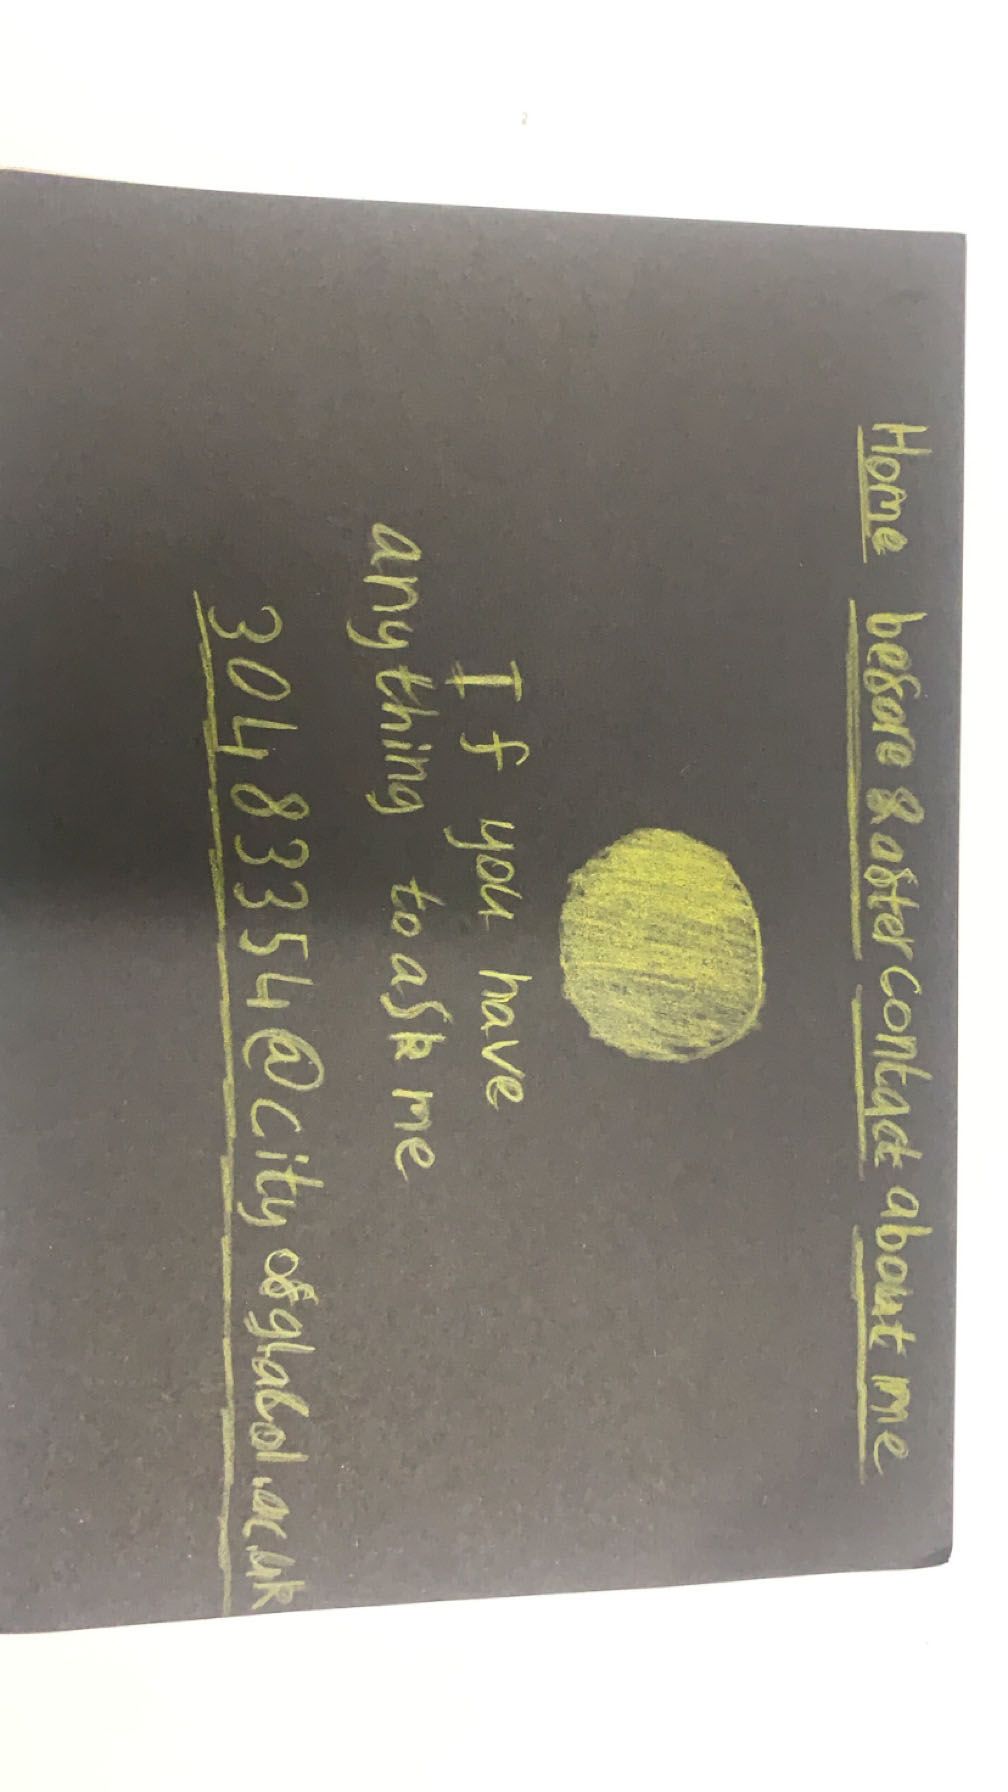 Home before & after contact about me
If you have
anything to ask me
30483354@cityofglabol.ac.uk